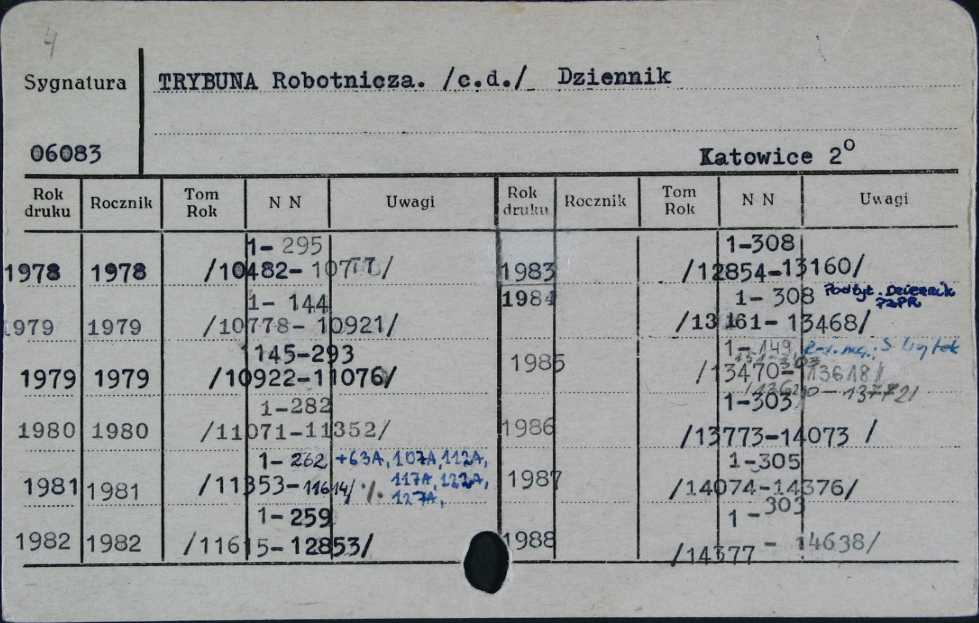 4
Sygnatura TRYBUNA Robotnicza. /c.d./ Dziennik
06083 Katowice 2°
Rok druku Rocznik Tom Rok N N Uwagi Rok druku Rocznik Tom Rok N N Uwagi
1-295 1-308
1978 1978 /10482- / 1983 /12854-13160/
1-144 1984 1-308 Podtyt. Dziennik PZPR
1979 1979 /10778-10921/ /13161-13468/
145-293 1-149
1979 1979 /10922-11076/ 1985 /13470-13618/
1-282 1-303
1980 1980 /11071-11352/ 1986 /13773-14073 /
1-262 +63A, 107A, 112A, 1-305
1981 1981 /11353-11614/ ./. 117A, 122A, 1987 /14074-14376/
127A,
1-259 1-303
1982 1982 /11615-12853/ 1988 /14377 - 14638/